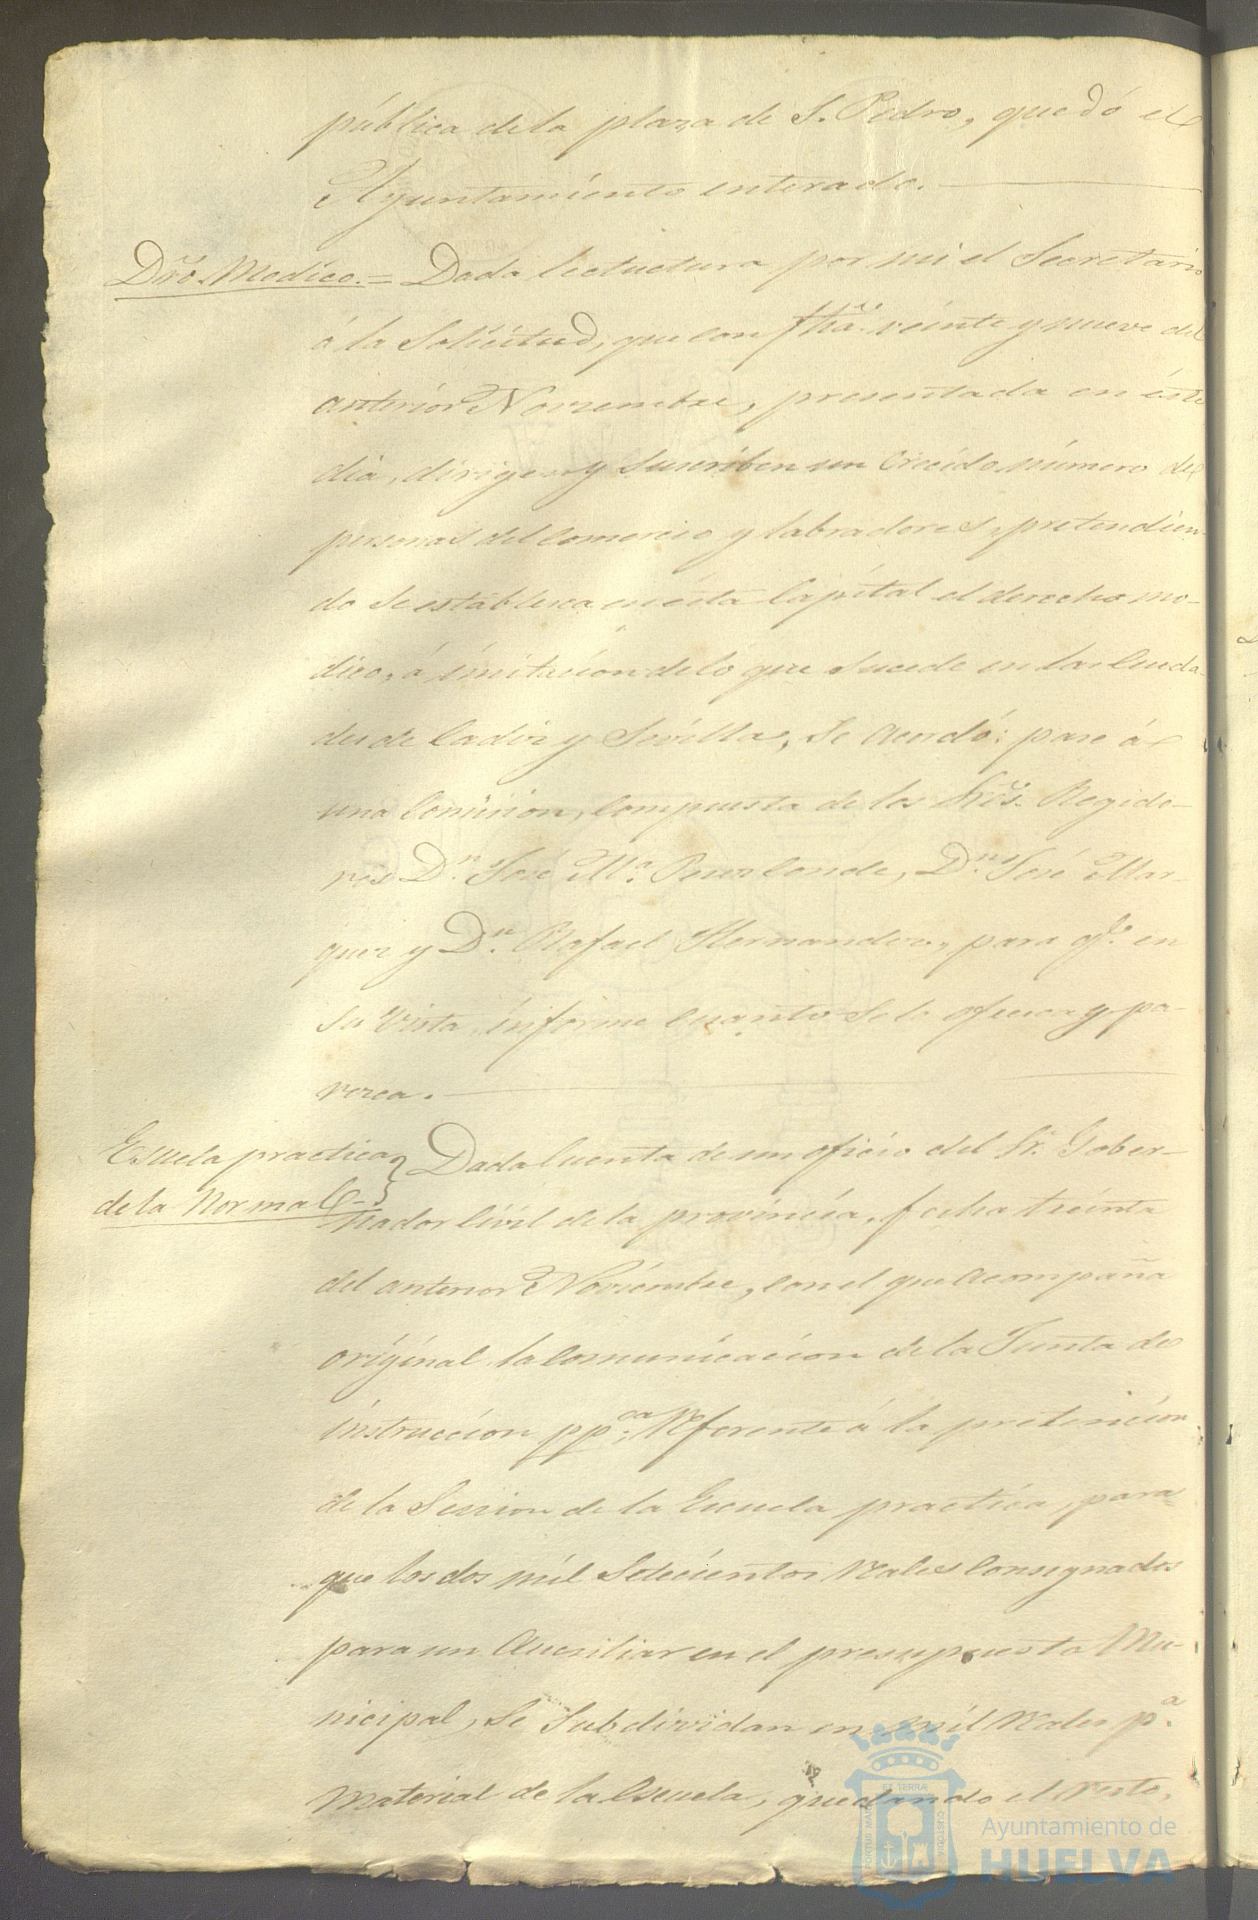 pública de la plaza de S. Pedro, quedó el
Ayuntamiento enterado.
Dro. Modico. = Dada lectuctura por mi el Secretario
á la Solicitud, que con fha. veinte y nueve del
anterior Noviembre, presentada en éste
dia, dirigen y suscriben un crecido número de
personas del Comercio y labradores, pretendien-
do se establezca en ésta Capital el derecho mo-
dico, á imitacion de lo que sucede en las Ciuda-
des de Cadiz y Sevilla, Se Acordó: pase á
una Comision, compuesta de los Sres. Regido-
res Dn. José Ma. Perez Conde, Dn. José Mar-
quez y Dn. Rafael Hernandez, para qe. en
su vista, informe cuanto se le ofrezca y pa-
rezca.
Escuela practica
de la Normal
Dada Cuenta de un oficio del Sr. Gober-
nador Civil de la provincia, fecha treinta
del anterior Noviembre, con el que acompaña
original la Comunicacion de la Junta de
instruccion ppca. Referente á la pretencion
de la Seccion de la Escuela practica, para
que los dos mil Setecientos Reales Consignados
para un Auxiliar en el presupuesto Mu-
nicipal, se Subdividan en mil Reales pa.
Material de la Escuela, quedando el resto,
Ayuntamiento de
HUELVA